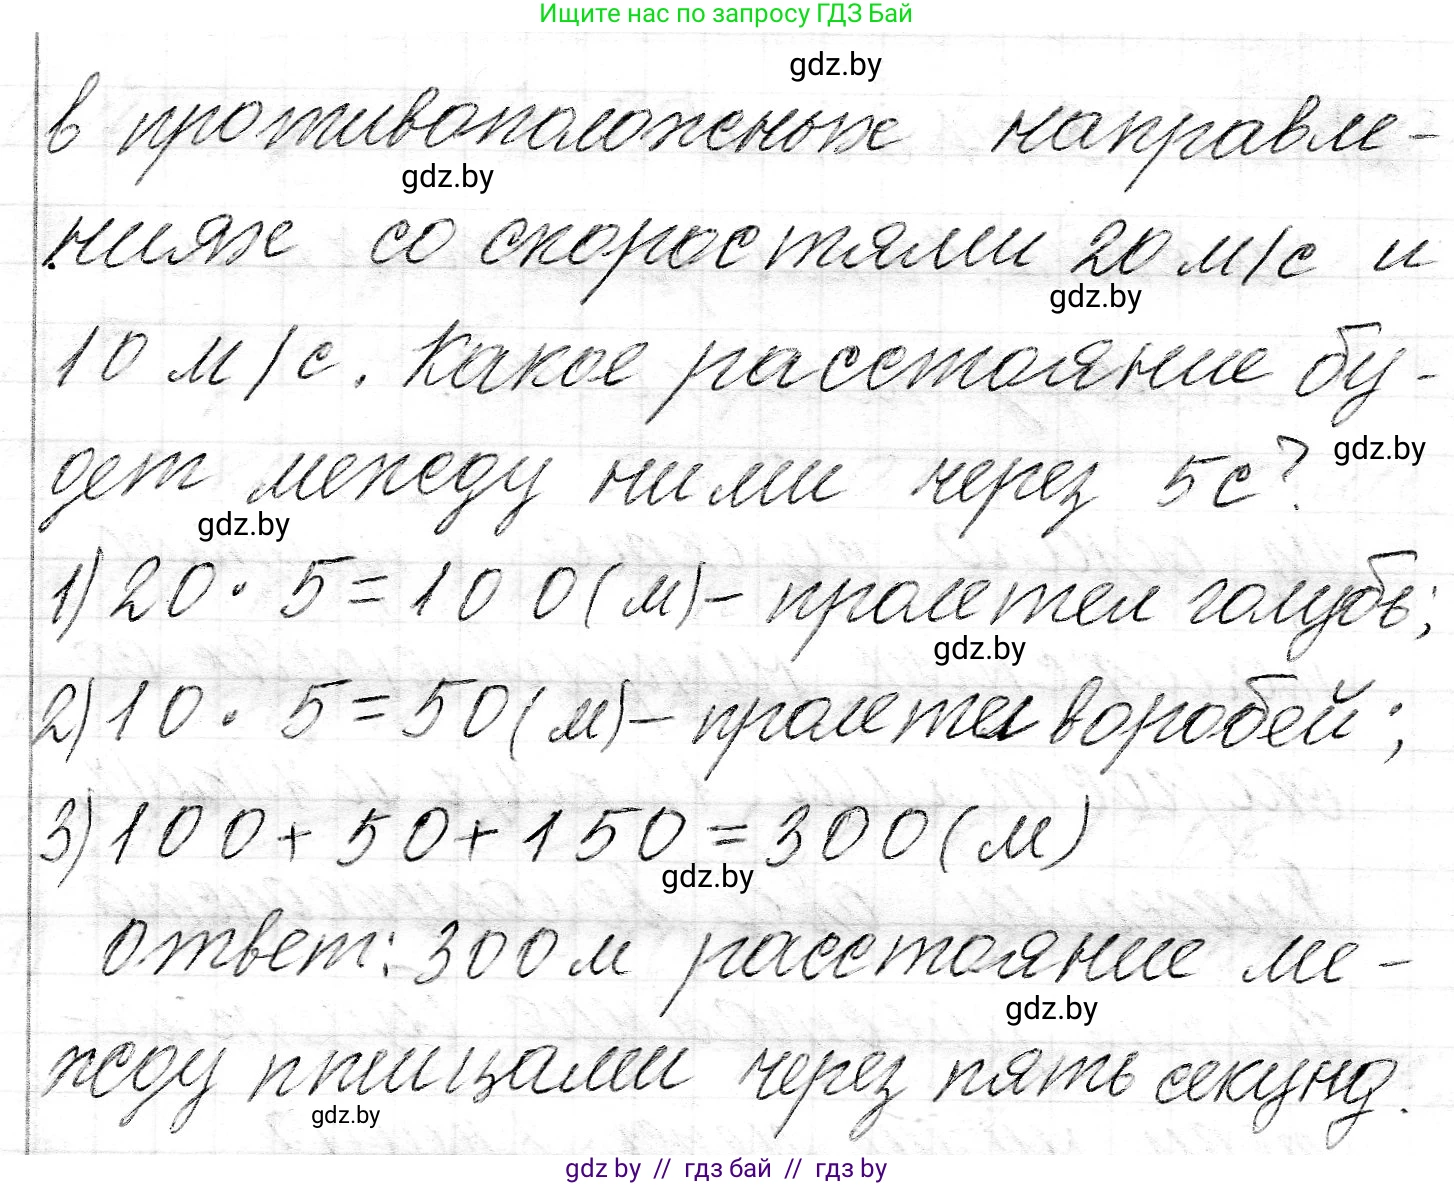 Ищите нас по запросу ГДЗ Бай
gdz.by
в противоположных направле-
gdz.by
ниях со скоростями 20 м/с и
gdz.by
10 м/с. Какое расстояние бу-
gdz.by
дет между ними через 5с?
gdz.by
1) 20 · 5 = 100 (м) - пролетел голубь;
gdz.by
2) 10 · 5 = 50 (м) - пролетел воробей;
3) 100 + 50 + 150 = 300 (м)
gdz.by
ответ: 300 м расстояние ме-
gdz.by
жду птицами через пять секунд.
gdz.by
gdz by // гдз бай // гдз by